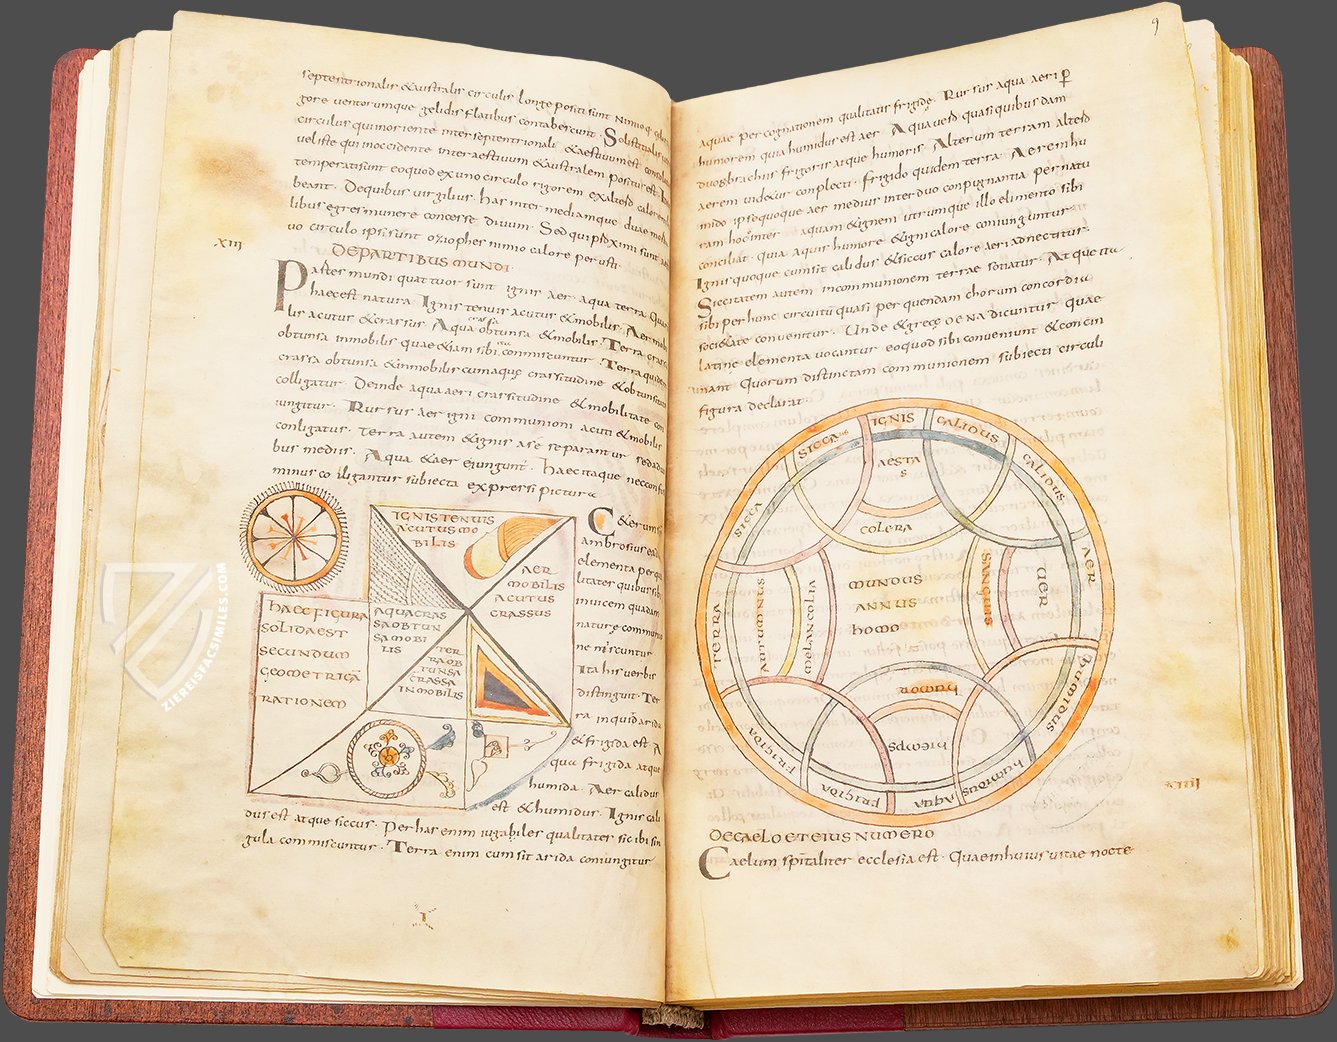 septentrionalis & australis circulis longe positi sunt Nimio
gore ventorumque gelidis flatibus contabescunt · Solstitialis
circulus qui inoriente inter septentrionali & aestivum est
velis te qui inoccidente inter aestivum & australem positus est
temperati sunt eo quod ex uno circulo rigorem ex altero calorem
beant · De quibus virgilius · has inter mediamque duae
libus egris munere concesse divum · Sed qui proximi sunt
uo circulo ipsi sunt nimio calore perusti
·XIII
DEPARTIBUS MUNDI·
Partes mundi quattuor sunt ignis aer · aqua terra · Quarum
haec est natura · Ignis tenuis acutus & mobilis · Aer mobi
lis acutus & crassus · Aqua crassa obtunsa & mobilis · Terra crassa
obtunsa inmobilis quae etiam sibi commiscuntur · Terra quidem
crassa obtunsa & inmobilis cum aquae crassitudine & obtunsitate
colligatur · Deinde aqua aeri crassitudine & mobilitate con
iungitur · Rursus aer igni communioni acuti & mobilis
conligatur · Terra autem & ignis a se separantur sed a duo
bus mediis · Aqua & aer eiungunt · haec itaque ne confusa
minus colligantur subiecta expressi pictura
IGNIS TENUIS
ACUTUS MO
BILIS
AER
MOBILIS
ACUTUS
CRASSUS
AQUA CRAS
SA OBTUN
SA MOBI
LIS
TER
RA OB
TUNSA
CRASSA
INMOBILIS
HAEC FIGURA
SOLIDA EST
SECUNDUM
GEOMETRICĀ
RATIONEM
C&erum
ambrosius
elementa per
litates quibus
invicem quadam
naturae communio
ne miscuntur
Ita his verbis
distinguit · Ter
ra inquid arida
& frigida est · A
qua frigida atque
humida · Aer calidus
est & humidus · Ignis cali
dus est atque siccus · Per has enim iugabiles qualitates sic ibi sin
gula commiscuntur · Terra enim cum sit arida coniungitur
I
9
aquae per cognationem qualitatis frigide · Rursus aqua aeri p̄
humorem quia humidus est aer · Aqua uero quasi quibusdam
duobrachiis frigoris atque humoris · Alterum terram altero
aerem videtur conplecti · frigido quidem terra · Aerem hu
mido ipse quoque aer medius inter duo conpugnantia per natu
ram hoc inter aquam & ignem utrumque illo elemento sibi
conciliat · quia aquis humore & igni calore coniunguntur
Ignis quoque cum sit calidus & siccus calore aeri adnectitur·
Siccitatem autem in communionem terrae sotiatur · Atque ita
sibi per hunc circuitu quasi per quendam chorum concordiae
societate conveniunt · Unde & grece dicuntur quae
latine elementa vocantur eo quod sibi conveniunt & concin
nant Quorum distinctam communionem subiecti circuli
figura declarat
SICCA
IGNIS
CALIDUS
CALIDUS
AER
HUMIDUS
HUMIDUS
AQUA
FRIGIDA
FRIGIDA
TERRA
SICCA
AESTA
S
COLERA
AUTUMNUS
MELANCOLIA
MUNDUS
ANNUS
HOMO
SANGUIS
UER
HUMOR
HIEMPS
XIIII
DECAELO ET EIUS NUMERO
Caelum spiritaliter ecclesia est · Quae in huius vitae nocte
ZIEREISFACSIMILES.COM